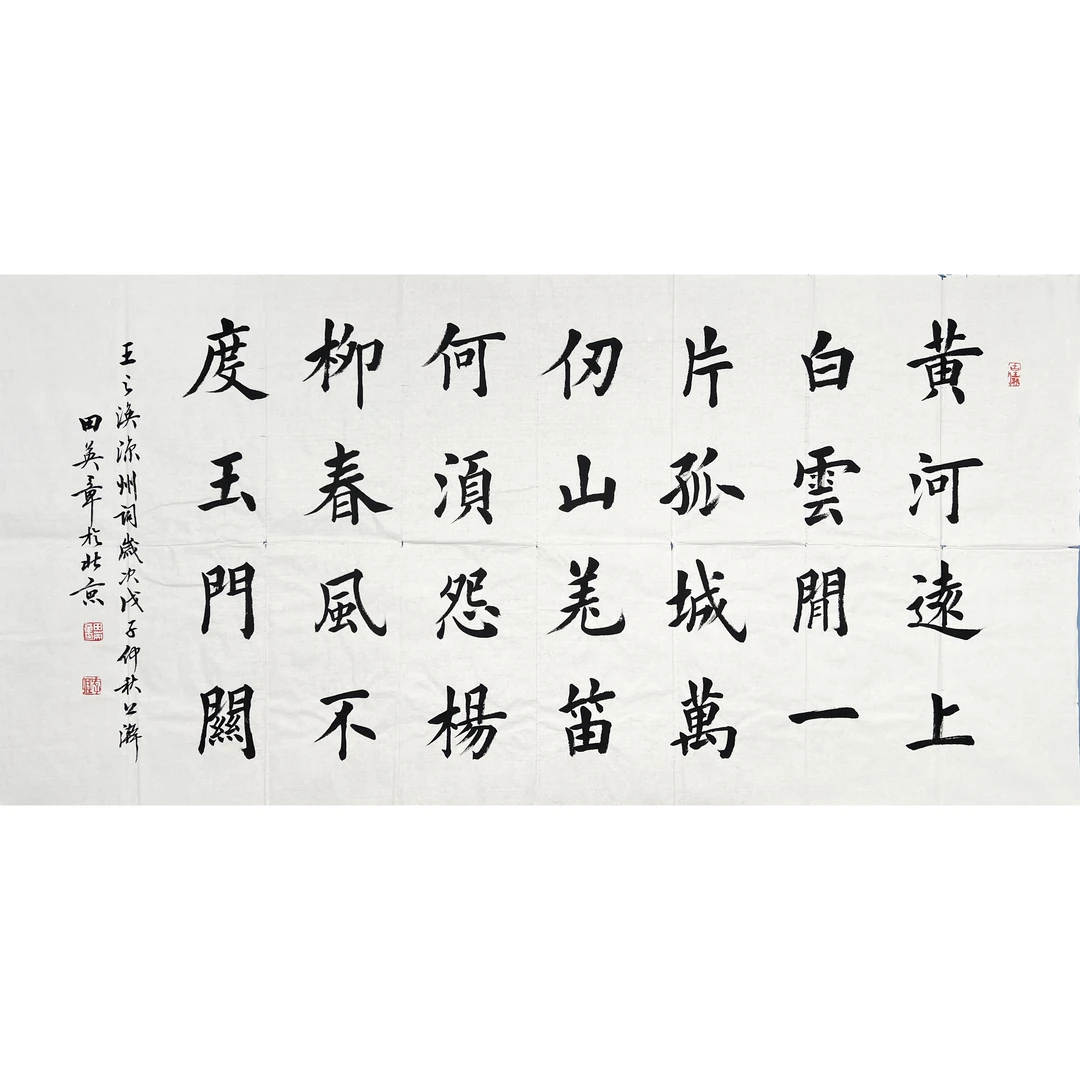 黃河遠上
白雲閒一
片孤城萬
仞山羌笛
何須怨楊
柳春風不
度玉門關
王之渙涼州詞歲次戊子仲秋上澣
田英章於北京